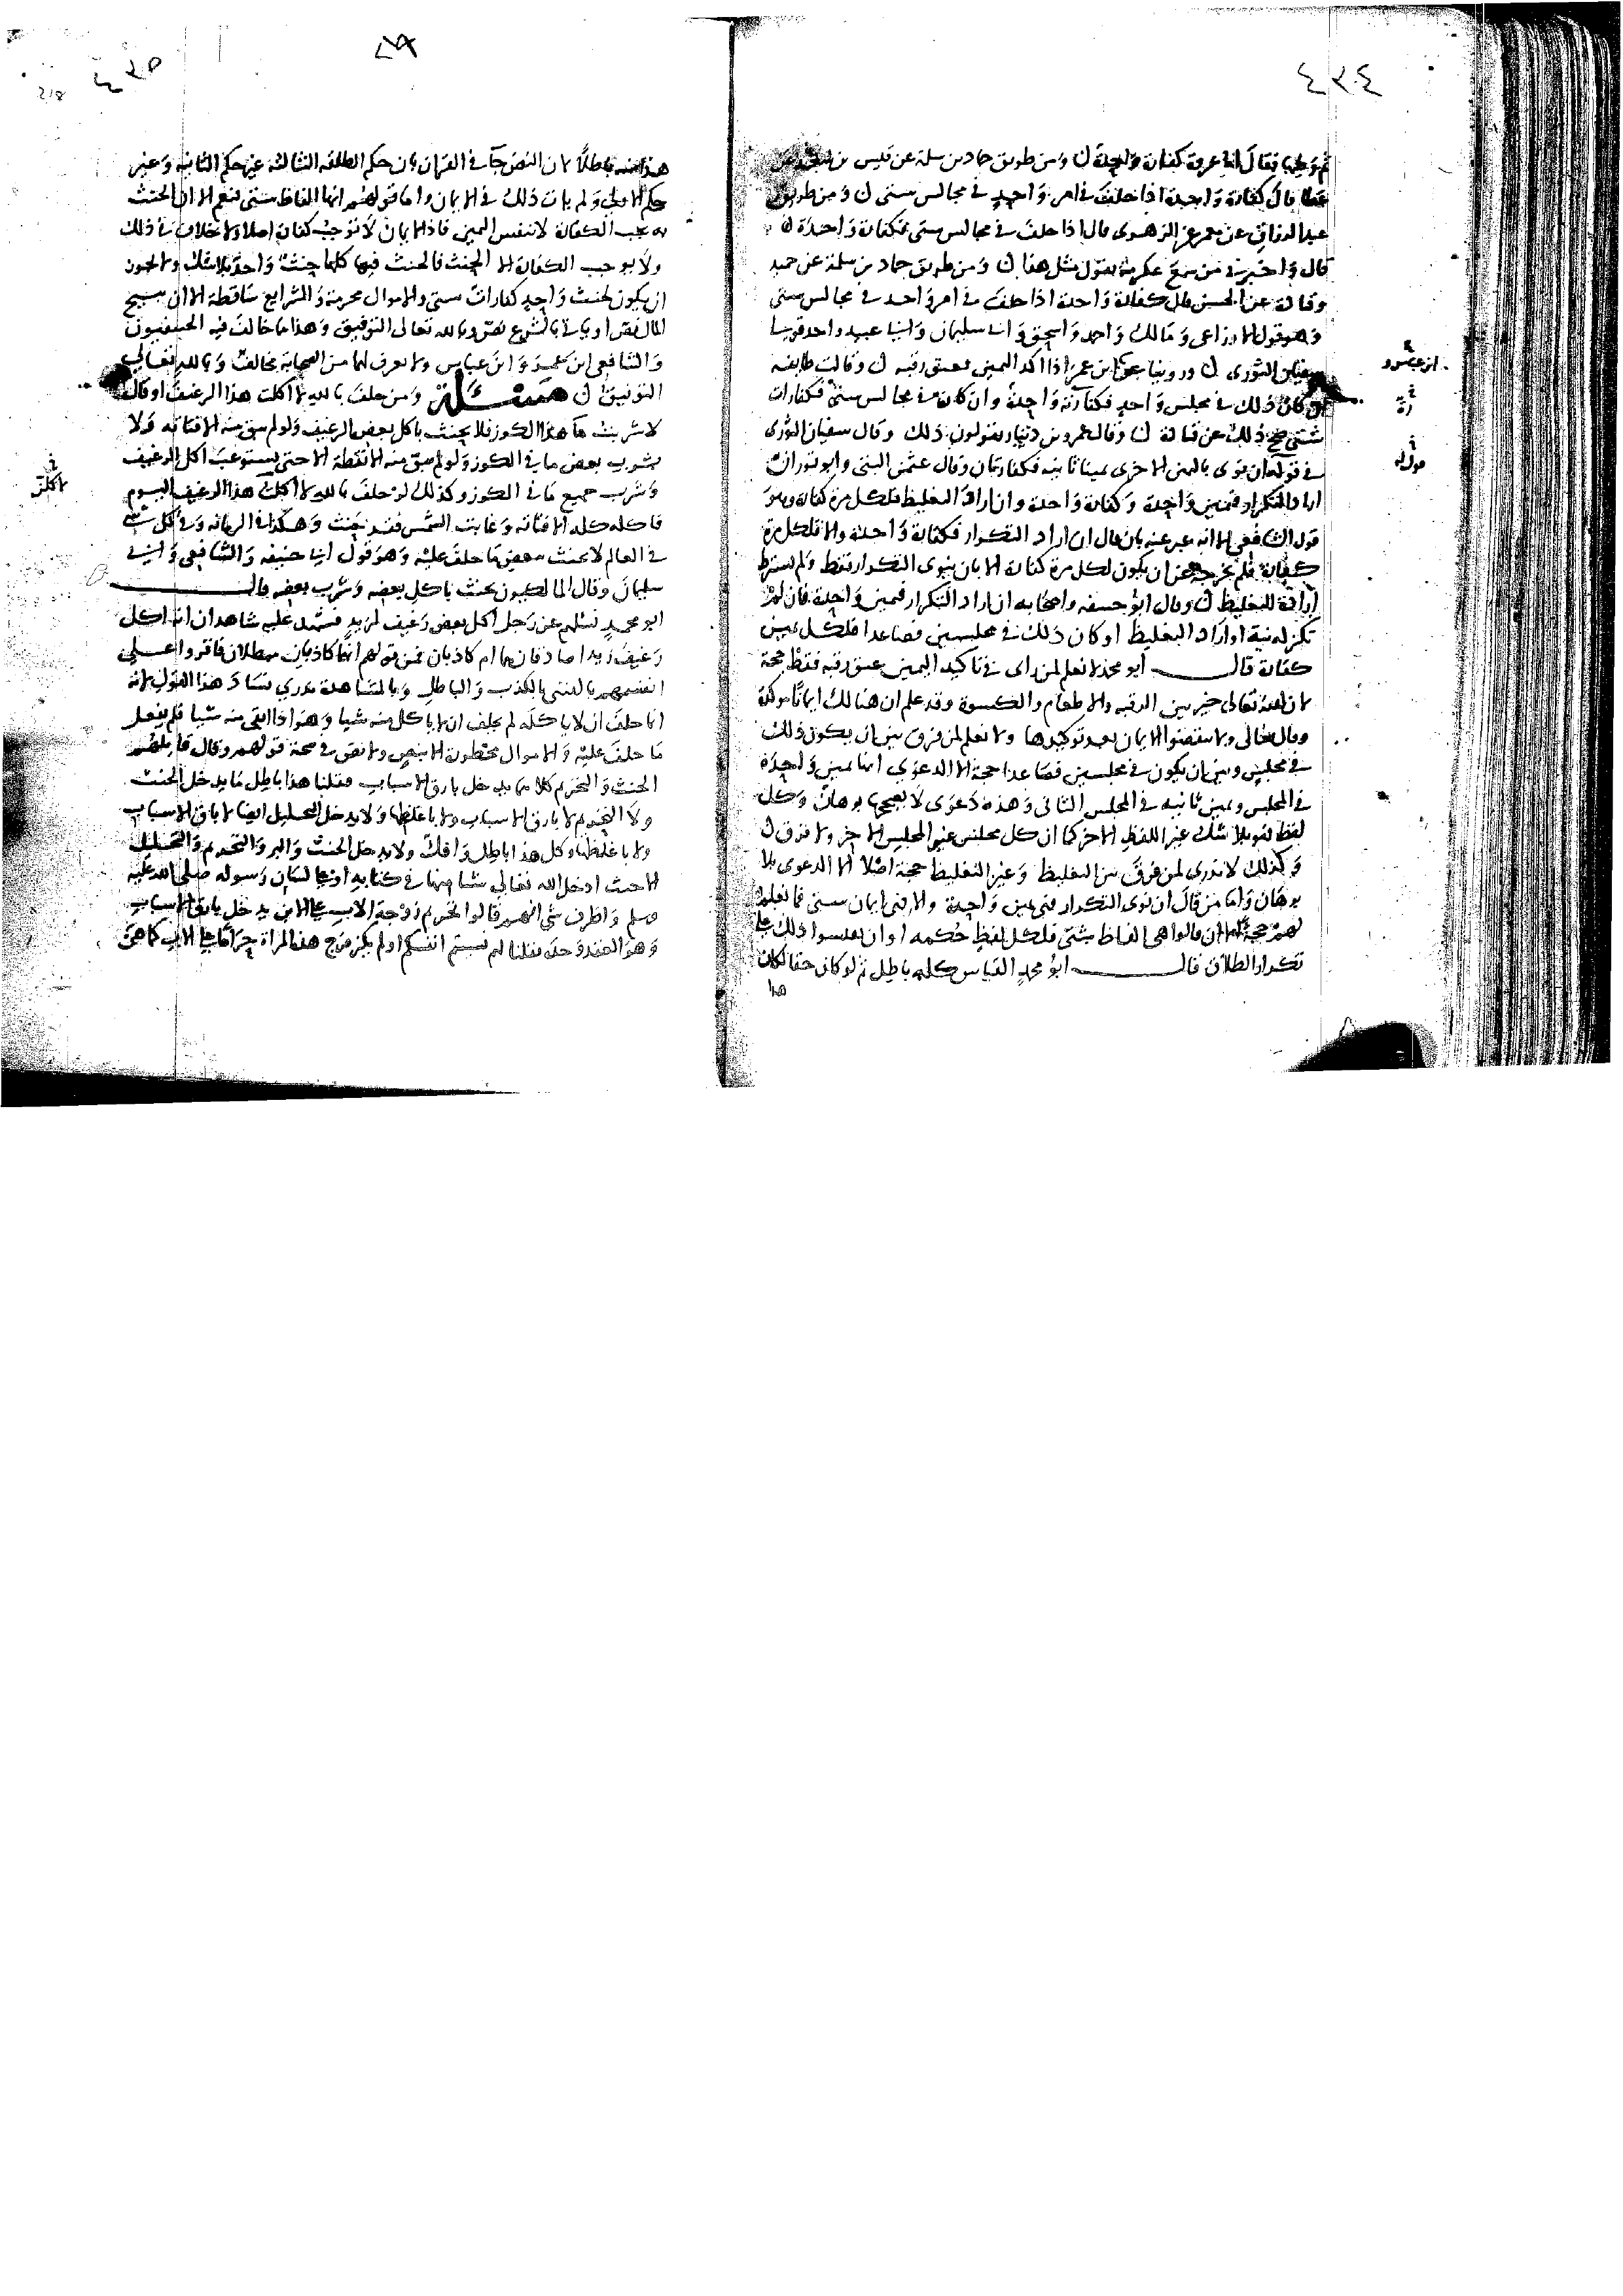 ٤٣٠٤
ثم وجها فقال انها عرية كفارة واحدة ن ومن طريق حماد بن سلمة عن قيس بن سعد عن
عطا قال كفارة واحدة اذا حلف في امر واحد في مجالس ستى ن ومن طريق
عبد الرزاق عن معمر عن الزهري قال اذا حلف في مجالس ستى فكفارة واحدة ن
قال واخبرني من سمع عكرمة يقول مثل هذا ن ومن طريق حماد بن سلمة عن حميد
وقادة عن الحسن قال كفارة واحدة اذا حلف في امر واحد في مجالس ستى
وهو قول الاوزاعي ومالك واحمد واسحق وابى سليمان وابى عبيد واحد قولى
سفيان الثوري ن وروينا عن ابن عمر اذا اكد اليمين بعتق رقبه ن وقالت طايفه
ان كان ذلك في مجلس واحد فكفارته واحدة وان كان في مجالس ستى فكفارات
شتى صح ذلك عن قتادة ن وقال عمرو بن دينار يقولون ذلك وقال سفيان الثوري
في قوله ان نوى باليمين الاخرى يمينا ثانيه فكفارتان وقال عثمن البتي وابو ثور ان
اراد التكرار فيمين واحدة وكفارة واحدة وان اراد التغليظ فلكل مرة كفارة وهو
قول الشافعي الا انه عبر عنه بان قال ان اراد التكرار فكفارة واحدة والا فلكل مرة
كفارة فلم يخرج عن ان يكون لكل مرة كفارة الا بان ينوى التكرار فقط ولم يشترط
ارادة التغليظ ن وقال ابو حنيفه واصحابه ان اراد التكرار فيمين واحدة فان لم
تكن له نية او اراد التغليظ او كان ذلك في مجلسين فصاعدا فلكل يمين
كفارة قال ابو محمد لا نعلم لمن راى في تاكيد اليمين عتق رقبه فقط حجة
لان الله تعالى خير بين الرقبه والاطعام والكسوة وقد علم ان هنالك ايمانا موكدة
وقال تعالى ولا تنقضوا الايمان بعد توكيدها ولا نعلم لمن فرق بين ان يكون ذلك
في مجلس وبين ان يكون في مجلسين فصاعدا حجة الا الدعوى انها يمين واحدة
في المجلس ويمين ثانيه في المجلس الثاني وهذه دعوى لا يصححها برهان وكل
لفظ فهو بلا شك غير اللفظ الاخر كما ان كل مجلس غير المجلس الاخر ولا فرق ن
وكذلك لا ندري لمن فرق بين التغليظ وغير التغليظ حجة اصلا الا الدعوى بلا
برهان واما من قال ان نوى التكرار فهي يمين واحدة والا فهي ايمان ستى فما نعلم
لهم حجة الا ان قالوا هي الفاظ شتى فلكل لفظ حكمه او ان يقيسوا ذلك على
تكرار الطلاق قال ابو محمد القياس كله باطل ثم لو كان حقا لكان
هذا
ابن عمرو
قول
٤٣٥
هذا منه باطلا لان النص جآ في القران بان حكم الطلقه الثالثه غير حكم الثانيه وغير
حكم الاولى ولم يات ذلك في الايمان واما قولهم انها الفاظ ستى فنعم الا ان الحنث
به يجب الكفارة لا بنفس اليمين فاذ الايمان لا توجب كفارة اصلا ولا خلاف في ذلك
ولا يوجب الكفارة الا الحنث فالحنث فيها كلها حنث واحد بلا شك ولا يجوز
ان يكون لحنث واحد كفارات ستى والاموال محرمة والشرايع ساقطة الا ان يبيح
المال نص او ياتي بالشرع نص وبالله تعالى التوفيق وهذا مما خالف فيه الحنيفيون
والشافعي ابن عمر وابن عباس ولا يعرف لهما من الصحابة مخالف وبالله تعالى
التوفيق ن مسئلة ومن حلف بالله لا اكلت هذا الرغيف او قال
لا شربت ما هذا الكوز فلا يحنث باكل بعض الرغيف ولو لم يبق منه الا فتاته ولا
بشرب بعض ما في الكوز ولو لم يبق منه الا نقطة الا حتى يستوعب اكل الرغيف
وشرب جميع ما في الكوز وكذلك لو حلف بالله لا اكلن هذا الرغيف اليوم
فاكله كله الا فتاته وغابت الشمس فقد حنث وهكذا في الرمانه وفي كل شي
في العالم لا يحنث ببعض ما حلف عليه وهو قول ابى حنيفه والشافعي وابى
سليمان وقال المالكيون يحنث باكل بعضه وشرب بعضه قال
ابو محمد نسئلهم عن رجل اكل بعض رغيف لزيد فشهد عليه شاهدان انه اكل
رغيف زيد اصادقان هما ام كاذبان فمن قولهم انهما كاذبان مبطلان فاقروا على
انفسهم بالفتيى بالكذب والباطل وبالمشاهدة ندري فساد هذا القول لانه
انما حلف ان لا ياكله لم يحلف ان لا ياكل منه شيا وهو اذا ابقى منه شيا فلم يفعل
ما حلف عليه والاموال محظورة الا بنص ولا نص في صحة قولهم وقال قايلهم
الحنث والتحريم كلاهما يدخل بارق الاسباب فقلنا هذا باطل ما يدخل الحنث
ولا التحريم لا بارق الاسباب ولا باغلظها ولا يدخل التحليل ايضا لا بارق الاسباب
ولا باغلظها وكل هذا باطل وافك ولا يدخل الحنث والبر والتحريم والتحليل
الا حيث ادخل الله تعالى شيا منها في كتابه او على لسان رسوله صلى الله عليه
وسلم واظرف شي انهم قالوا تحريم زوجة الاب على الابن يدخل بارق الاسباب
وهو العقد وحده فقلنا لهم نسيتم انفسكم او لم يكن فرج هذه المراة حراما على الاب كما هي
لاكلن